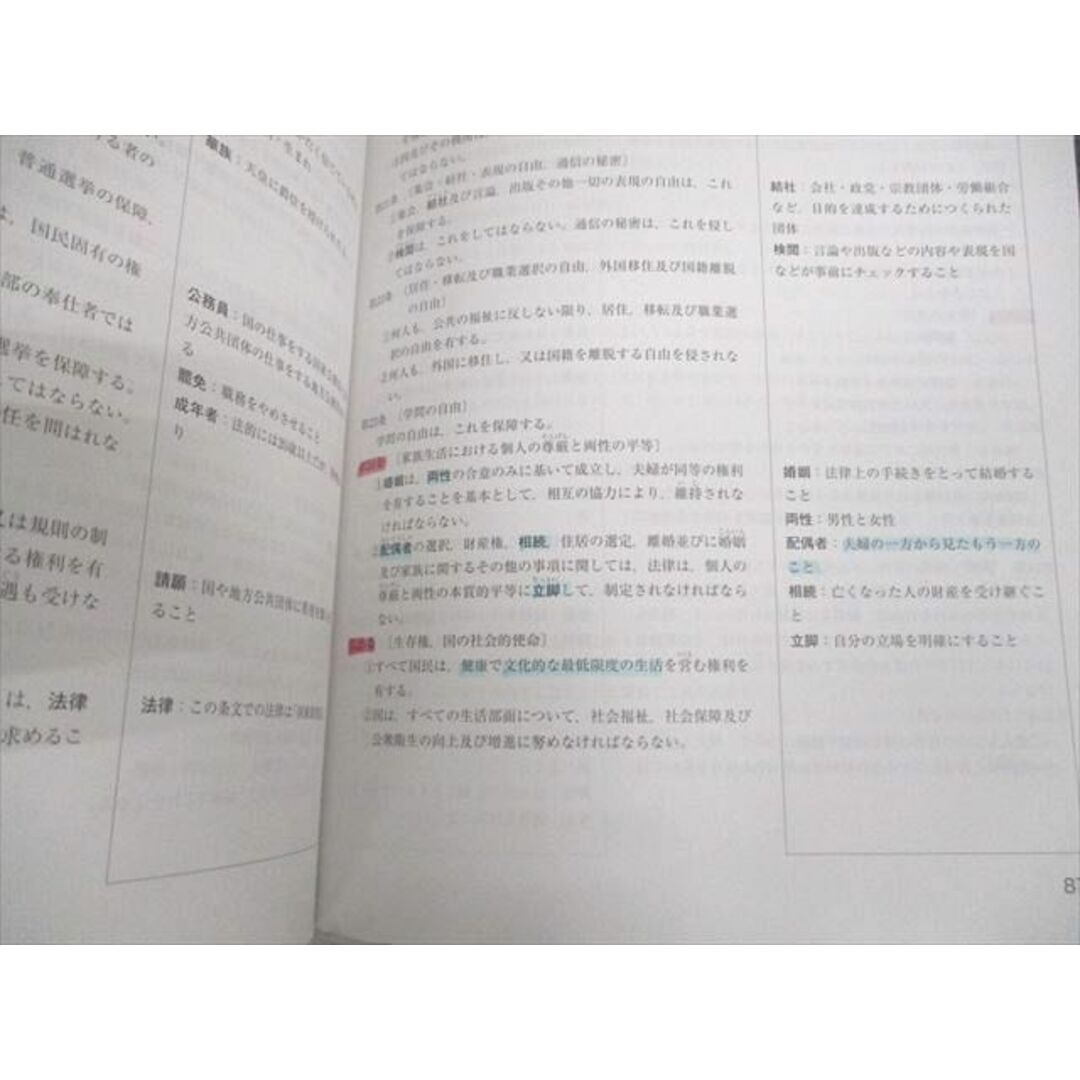 る者の
普通選挙の保障、
は、国民固有の権
部の奉仕者では
選挙を保障する。
してはならない。
任を問はれな
又は規則の制
る権利を有
遇も受けな
は、法律
求めるこ
公務員：国の仕事をする
方公共団体の仕事をする
る
罷免：職務をやめさせること
成年者：法的には
り
請願：国や地方公共団体に
ること
法律：この条文での法律は
てはならない。
〔集会・結社・表現の自由、通信の秘密〕
集会、結社及び言論、出版その他一切の表現の自由は、これ
を保障する。
②検閲は、これをしてはならない。通信の秘密は、これを侵し
てはならない。
〔居住・移転及び職業選択の自由、外国移住及び国籍離脱
の自由〕
①何人も、公共の福祉に反しない限り、居住、移転及び職業選
択の自由を有する。
②何人も、外国に移住し、又は国籍を離脱する自由を侵されな
い。
〔学問の自由〕
学問の自由は、これを保障する。
〔家族生活における個人の尊厳と両性の平等〕
①婚姻は、両性の合意のみに基いて成立し、夫婦が同等の権利
を有することを基本として、相互の協力により、維持されな
ければならない。
②配偶者の選択、財産権、相続、住居の選定、離婚並びに婚姻
及び家族に関するその他の事項に関しては、法律は、個人の
尊厳と両性の本質的平等に立脚して、制定されなければなら
ない。
〔生存権、国の社会的使命〕
①すべて国民は、健康で文化的な最低限度の生活を営む権利を
有する。
②国は、すべての生活部面について、社会福祉、社会保障及び
公衆衛生の向上及び増進に努めなければならない。
結社：会社・政党・宗教団体・労働組合
など、目的を達成するためにつくられた
団体
検閲：言論や出版などの内容や表現を国
などが事前にチェックすること
婚姻：法律上の手続きをとって結婚する
こと
両性：男性と女性
配偶者：夫婦の一方から見たもう一方の
こと
相続：亡くなった人の財産を受け継ぐこ
と
立脚：自分の立場を明確にすること